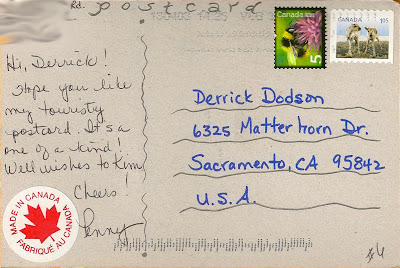 Rd. postcard
Hi, Derrick!
Hope you like
my touristy
postcard. It's a
one of a kind!
Well wishes to Kim,
Cheers!
Penny
MADE IN CANADA
FABRIQUÉ AU CANADA
Canada
5
CANADA
105
Derrick Dodson
6325 Matterhorn Dr.
Sacramento, CA 95842
U.S.A.